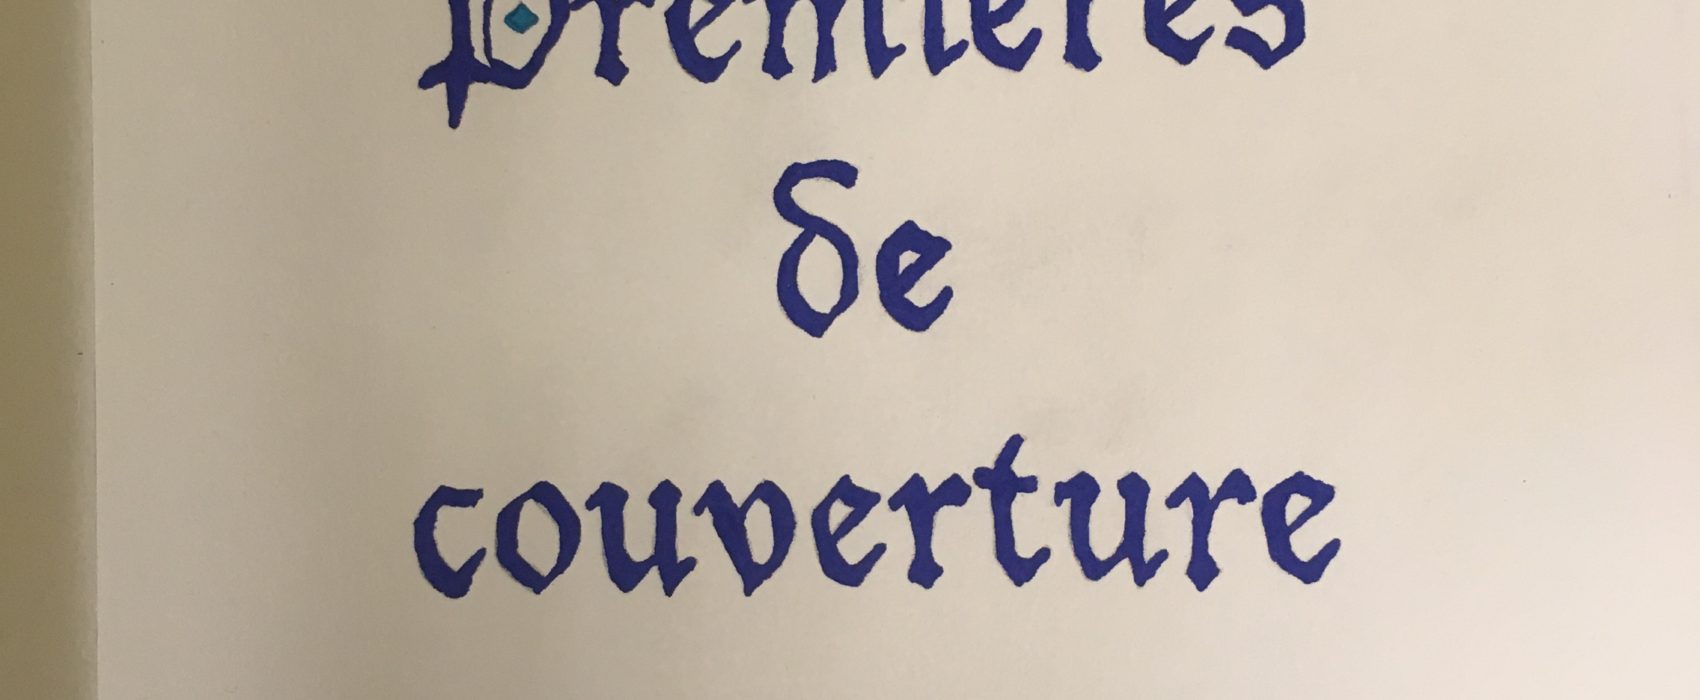 Premières
de
couverture